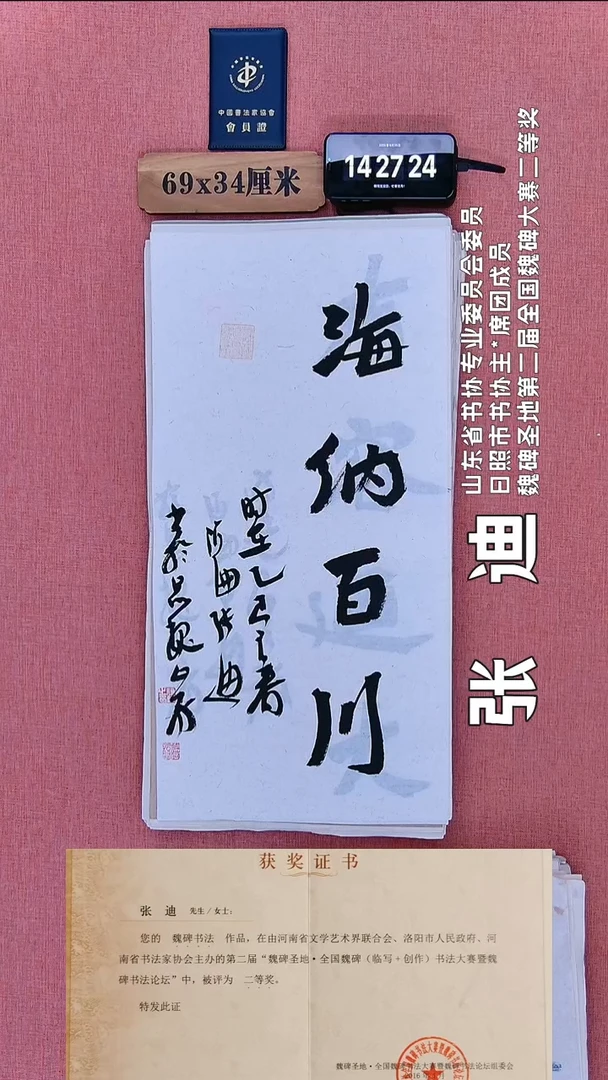 中國書法家協會
會員證
69x34厘米
14 27 24
山东省书协专业委员会委员
日照市书协主*席团成员
魏碑圣地第二届全国魏碑大赛二等奖
张 迪
海纳百川
时在乙巳之春
张迪
获奖证书
张 迪 先生/女士:
您的 魏碑书法 作品，在由河南省文学艺术界联合会、洛阳市人民政府、河
南省书法家协会主办的第二届“魏碑圣地·全国魏碑（临写+创作）书法大赛暨魏
碑书法论坛”中，被评为 二等奖。
特发此证
魏碑圣地·全国魏碑书法大赛暨魏碑书法论坛组委会